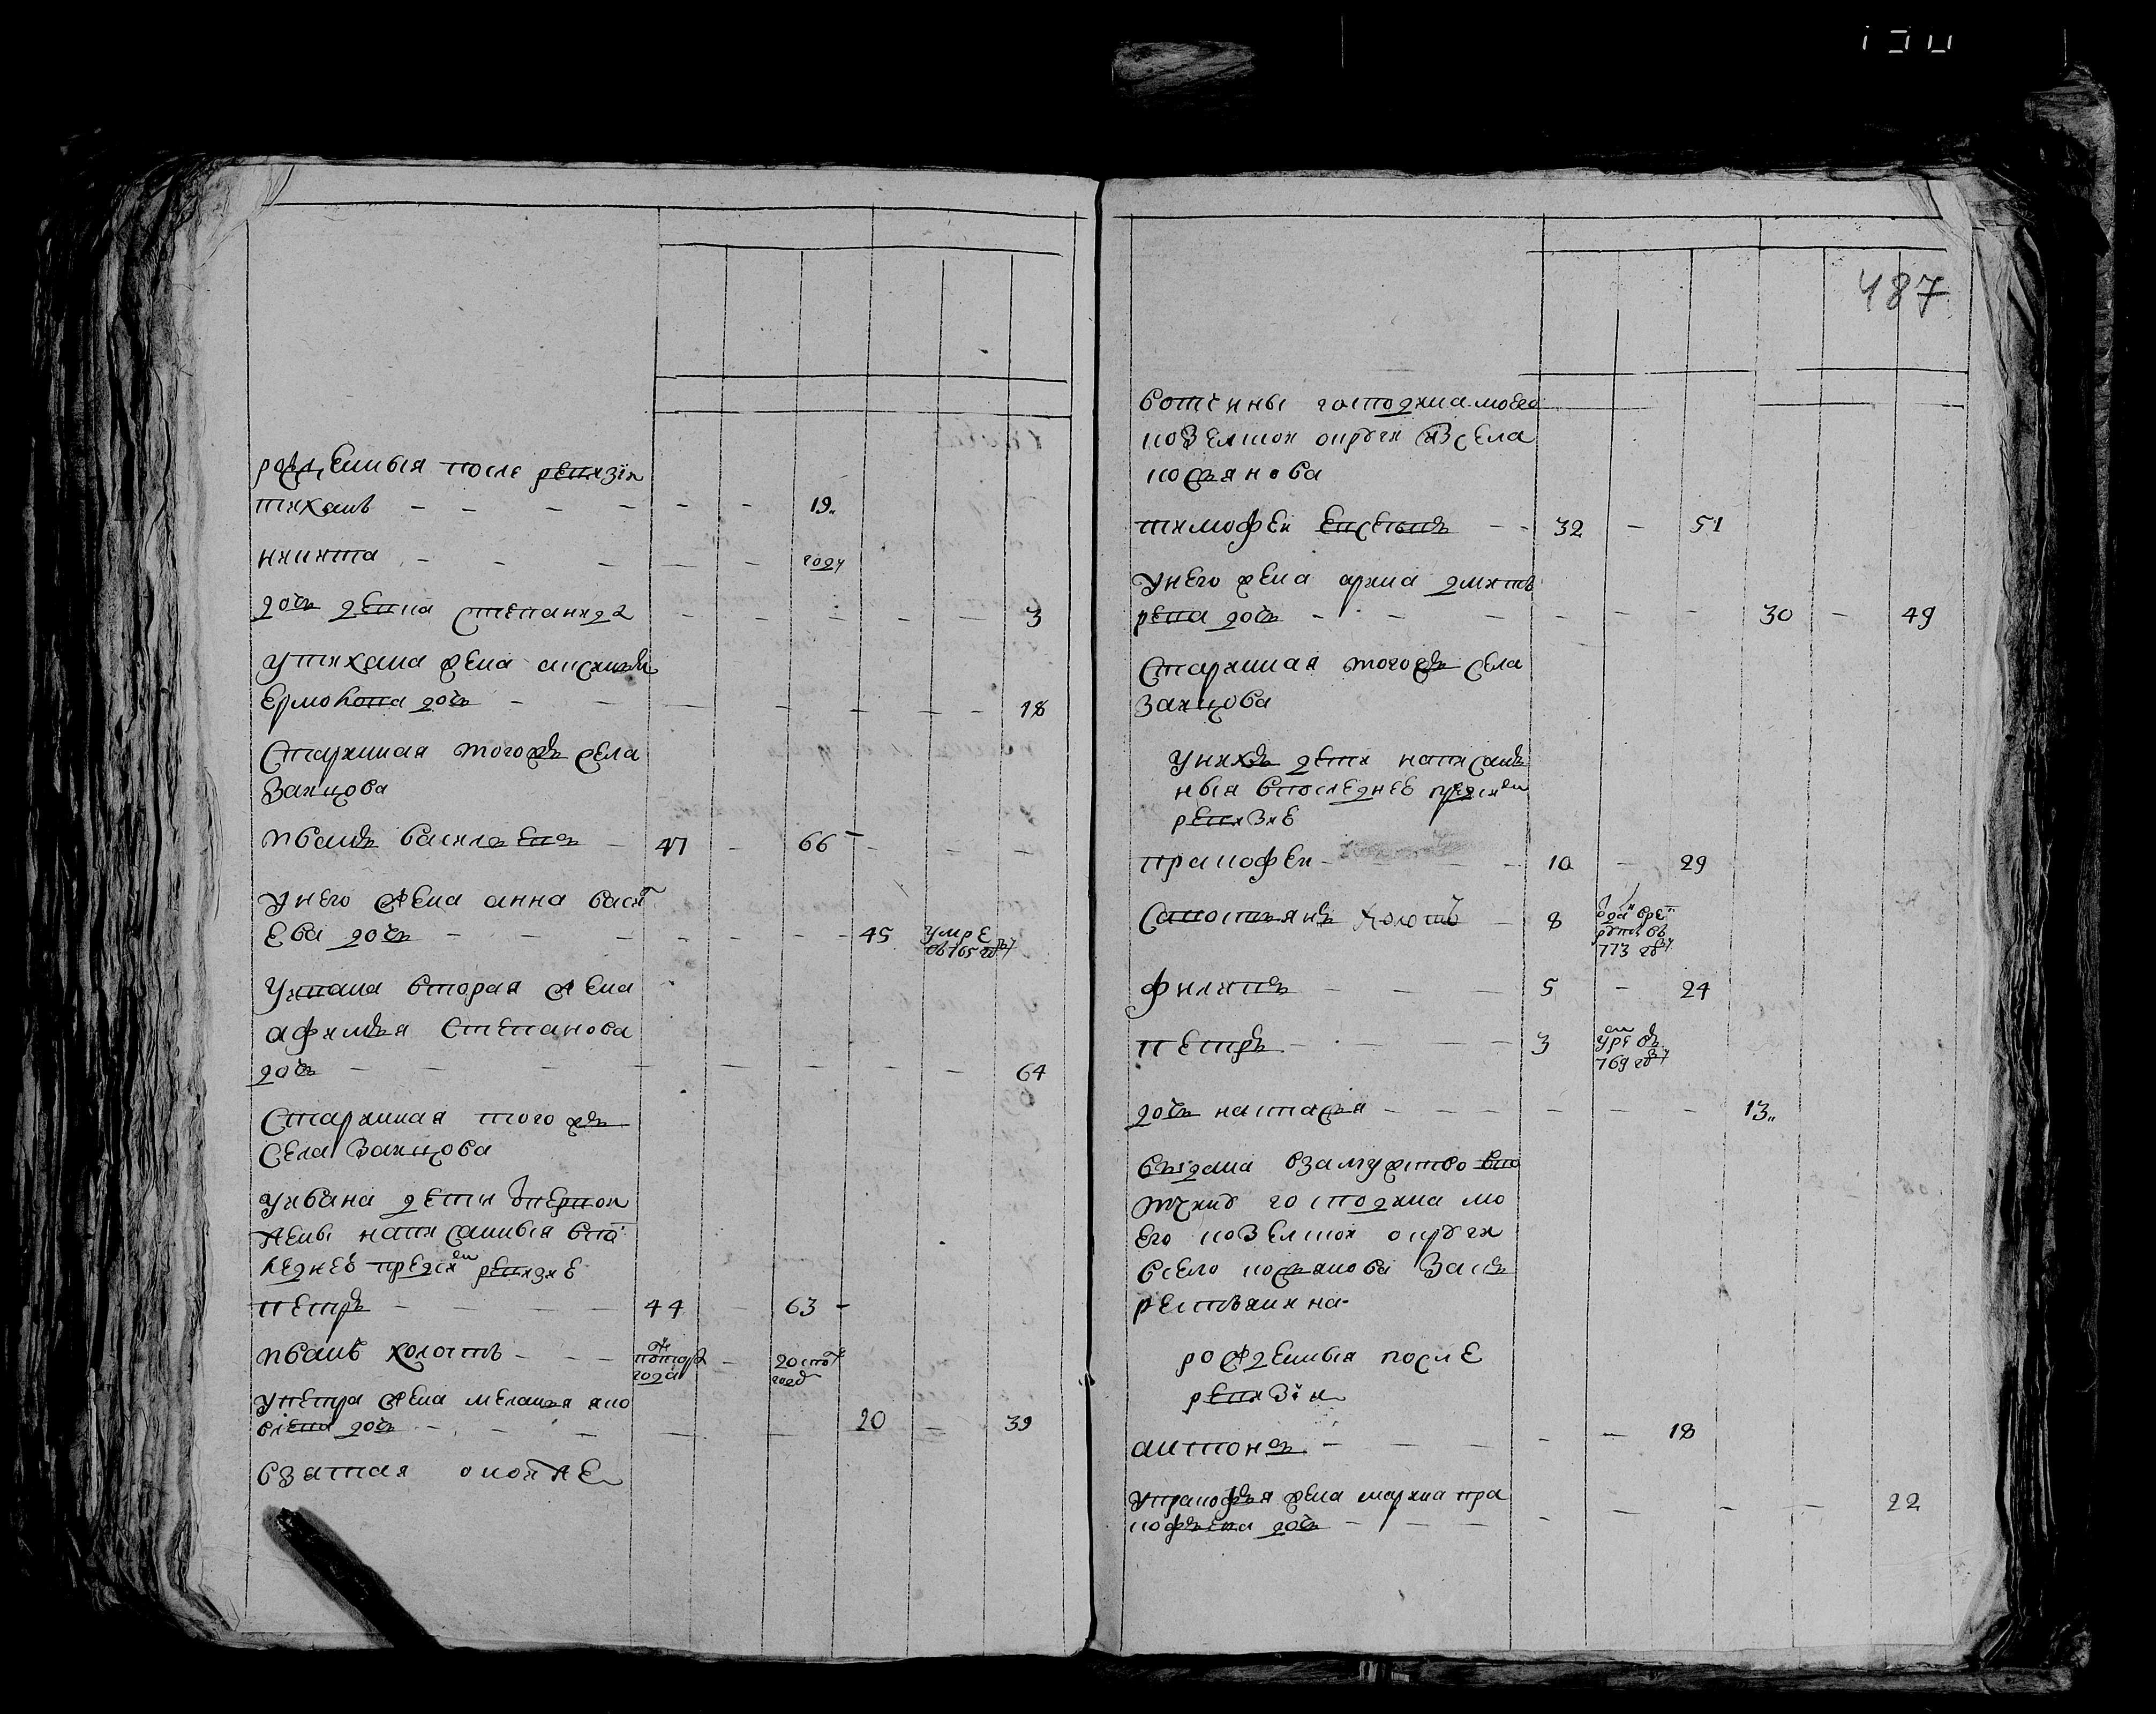 рожденныя после ревизiи
тиханъ - - - - - - 19.
никита - - - - - году
дочь девка степанида - - - - - 3
у тихана жена аксинья
ермолова дочь - - - - - - - 18
старинная тогожъ села
Заицова
иванъ василевъ - 47 - 66 - - -
у него жена анна васил
ева дочь - - - - - - - 45 умре
въ 765 году
у ивана вторая жена
афимья степанова
дочь - - - - - - - - 64
старинная того жъ
села Заицова
у ивана дети от первои
жены написанныя в по
следнеи пред сим ревизие
петръ - - - - 44 63 -
иванъ холостъ - - - полтора
года - 20 с пол
году
у петра жена меланья яко
влева дочь - - - - - 20 - 39
взятая оной же
487
вотчины господина моего
козелской округи из села
косьянова
тимофеи евсевьевъ - - 32 - 51
у него жена арина дмит
рева дочь - - - - - - 30 - 49
старинная тогожъ села
Заицова
у нихъ дети написан
ныя в последнеи пред сим
ревизие
пракофеи - - - - 10 - 29
савостьянъ холостъ - 8 отдан в рек
руты въ
773 году
филипъ - - - 5 - 24
петръ - - - - 3 умре въ
769 году
дочь настасья - - - - - - 13.
выдана взамужство в во
тчину господина мо
его козелской округи
в село косьяново за кь
рестьянина
рожденныя после
ревизiи
антонъ - - - - - - 18
у пракофья жена марина пра
кофьева дочь - - - - - - - 22